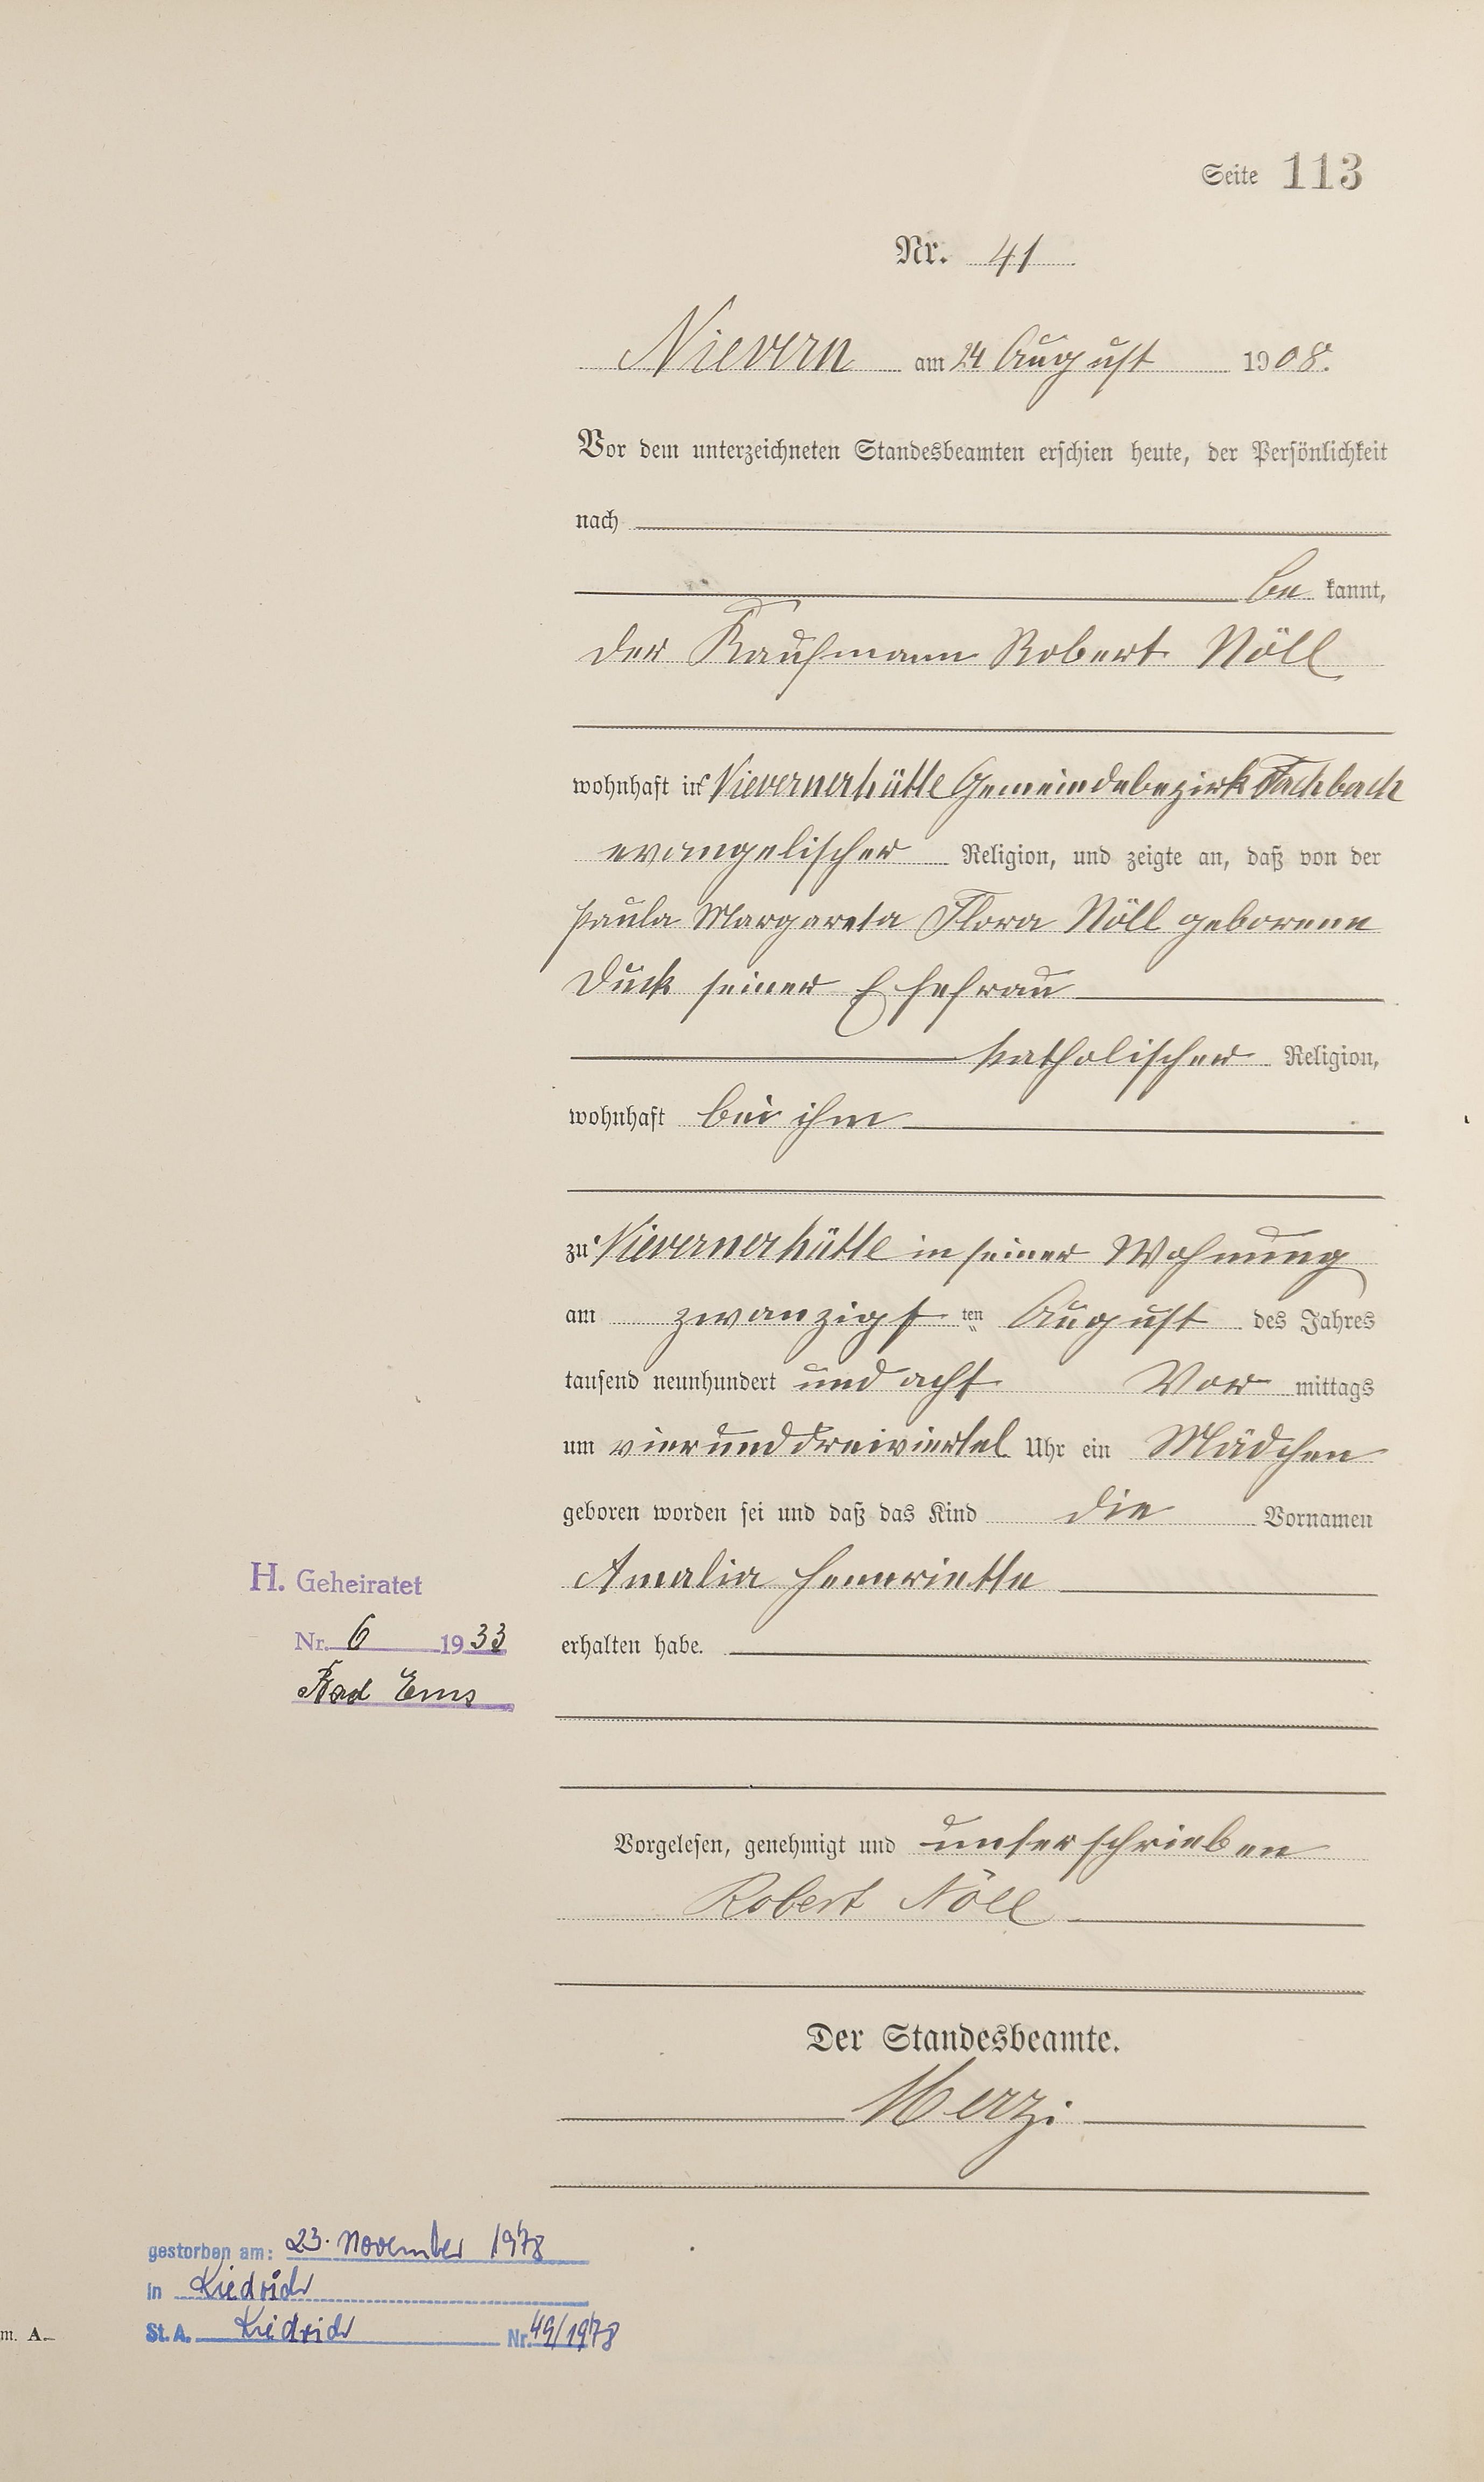 Seite 113
Nr. 41
Nievern am 24 August 1908.
Vor dem unterzeichneten Standesbeamten erschien heute, der Persönlichkeit
nach
be kannt,
der Kaufmann Robert Nöll
wohnhaft in Nievernerhütte Gemeindebezirk Fachbach
evangelischer Religion, und zeigte an, daß von der
Paula Margareta Flora Nöll geborene
Dück seiner Ehefrau
katholischer Religion,
wohnhaft bei ihm
zu Nievernerhütte in seiner Wohnung
am zwanzigsten August des Jahres
tausend neunhundert und acht Vor mittags
um vierunddreiviertel Uhr ein Mädchen
geboren worden sei und daß das Kind die Vornamen
Amalia Henriette
erhalten habe.
H. Geheiratet
Nr. 6 1933
Bad Ems
Vorgelesen, genehmigt und unterschrieben
Robert Nöll
Der Standesbeamte.
Merzi
gestorben am: 23. November 1978
in Kiedrich
St. A. Kiedrich Nr. 49/1978
m. A.